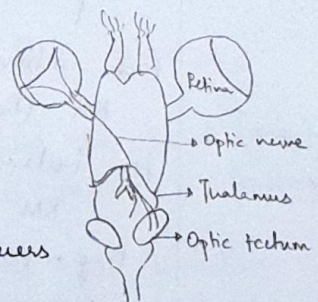 Retina
Optic nerve
Thalamus
Optic tectum